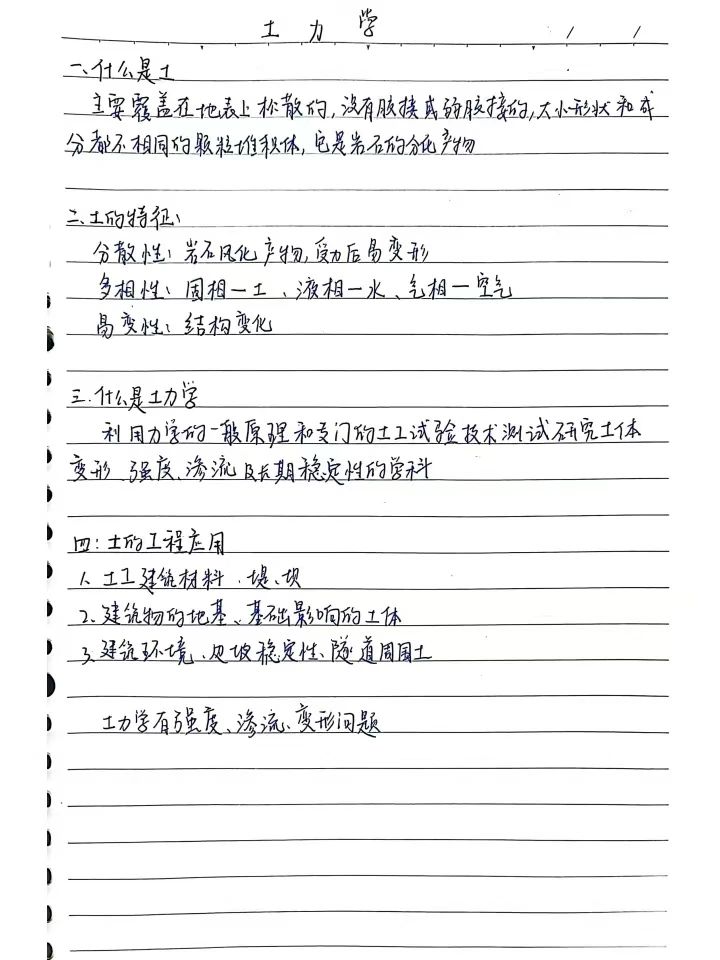 土力学
一、什么是土
主要覆盖在地表上松散的,没有胶接或弱胶接的,大小形状和成
分都不相同的颗粒堆积体,它是岩石的分化产物
二、土的特征:
分散性:岩石风化产物,受力后易变形
多相性:固相—土、液相—水、气相—空气
易变性:结构变化
三.什么是土力学
利用力学的一般原理和专门的土工试验技术测试研究土体
变形、强度、渗流及长期稳定性的学科
四:土的工程应用
1、土工建筑材料、堤、坝
2、建筑物的地基、基础影响的土体
3、建筑环境、边坡稳定性、隧道周围土
土力学有强度、渗流、变形问题